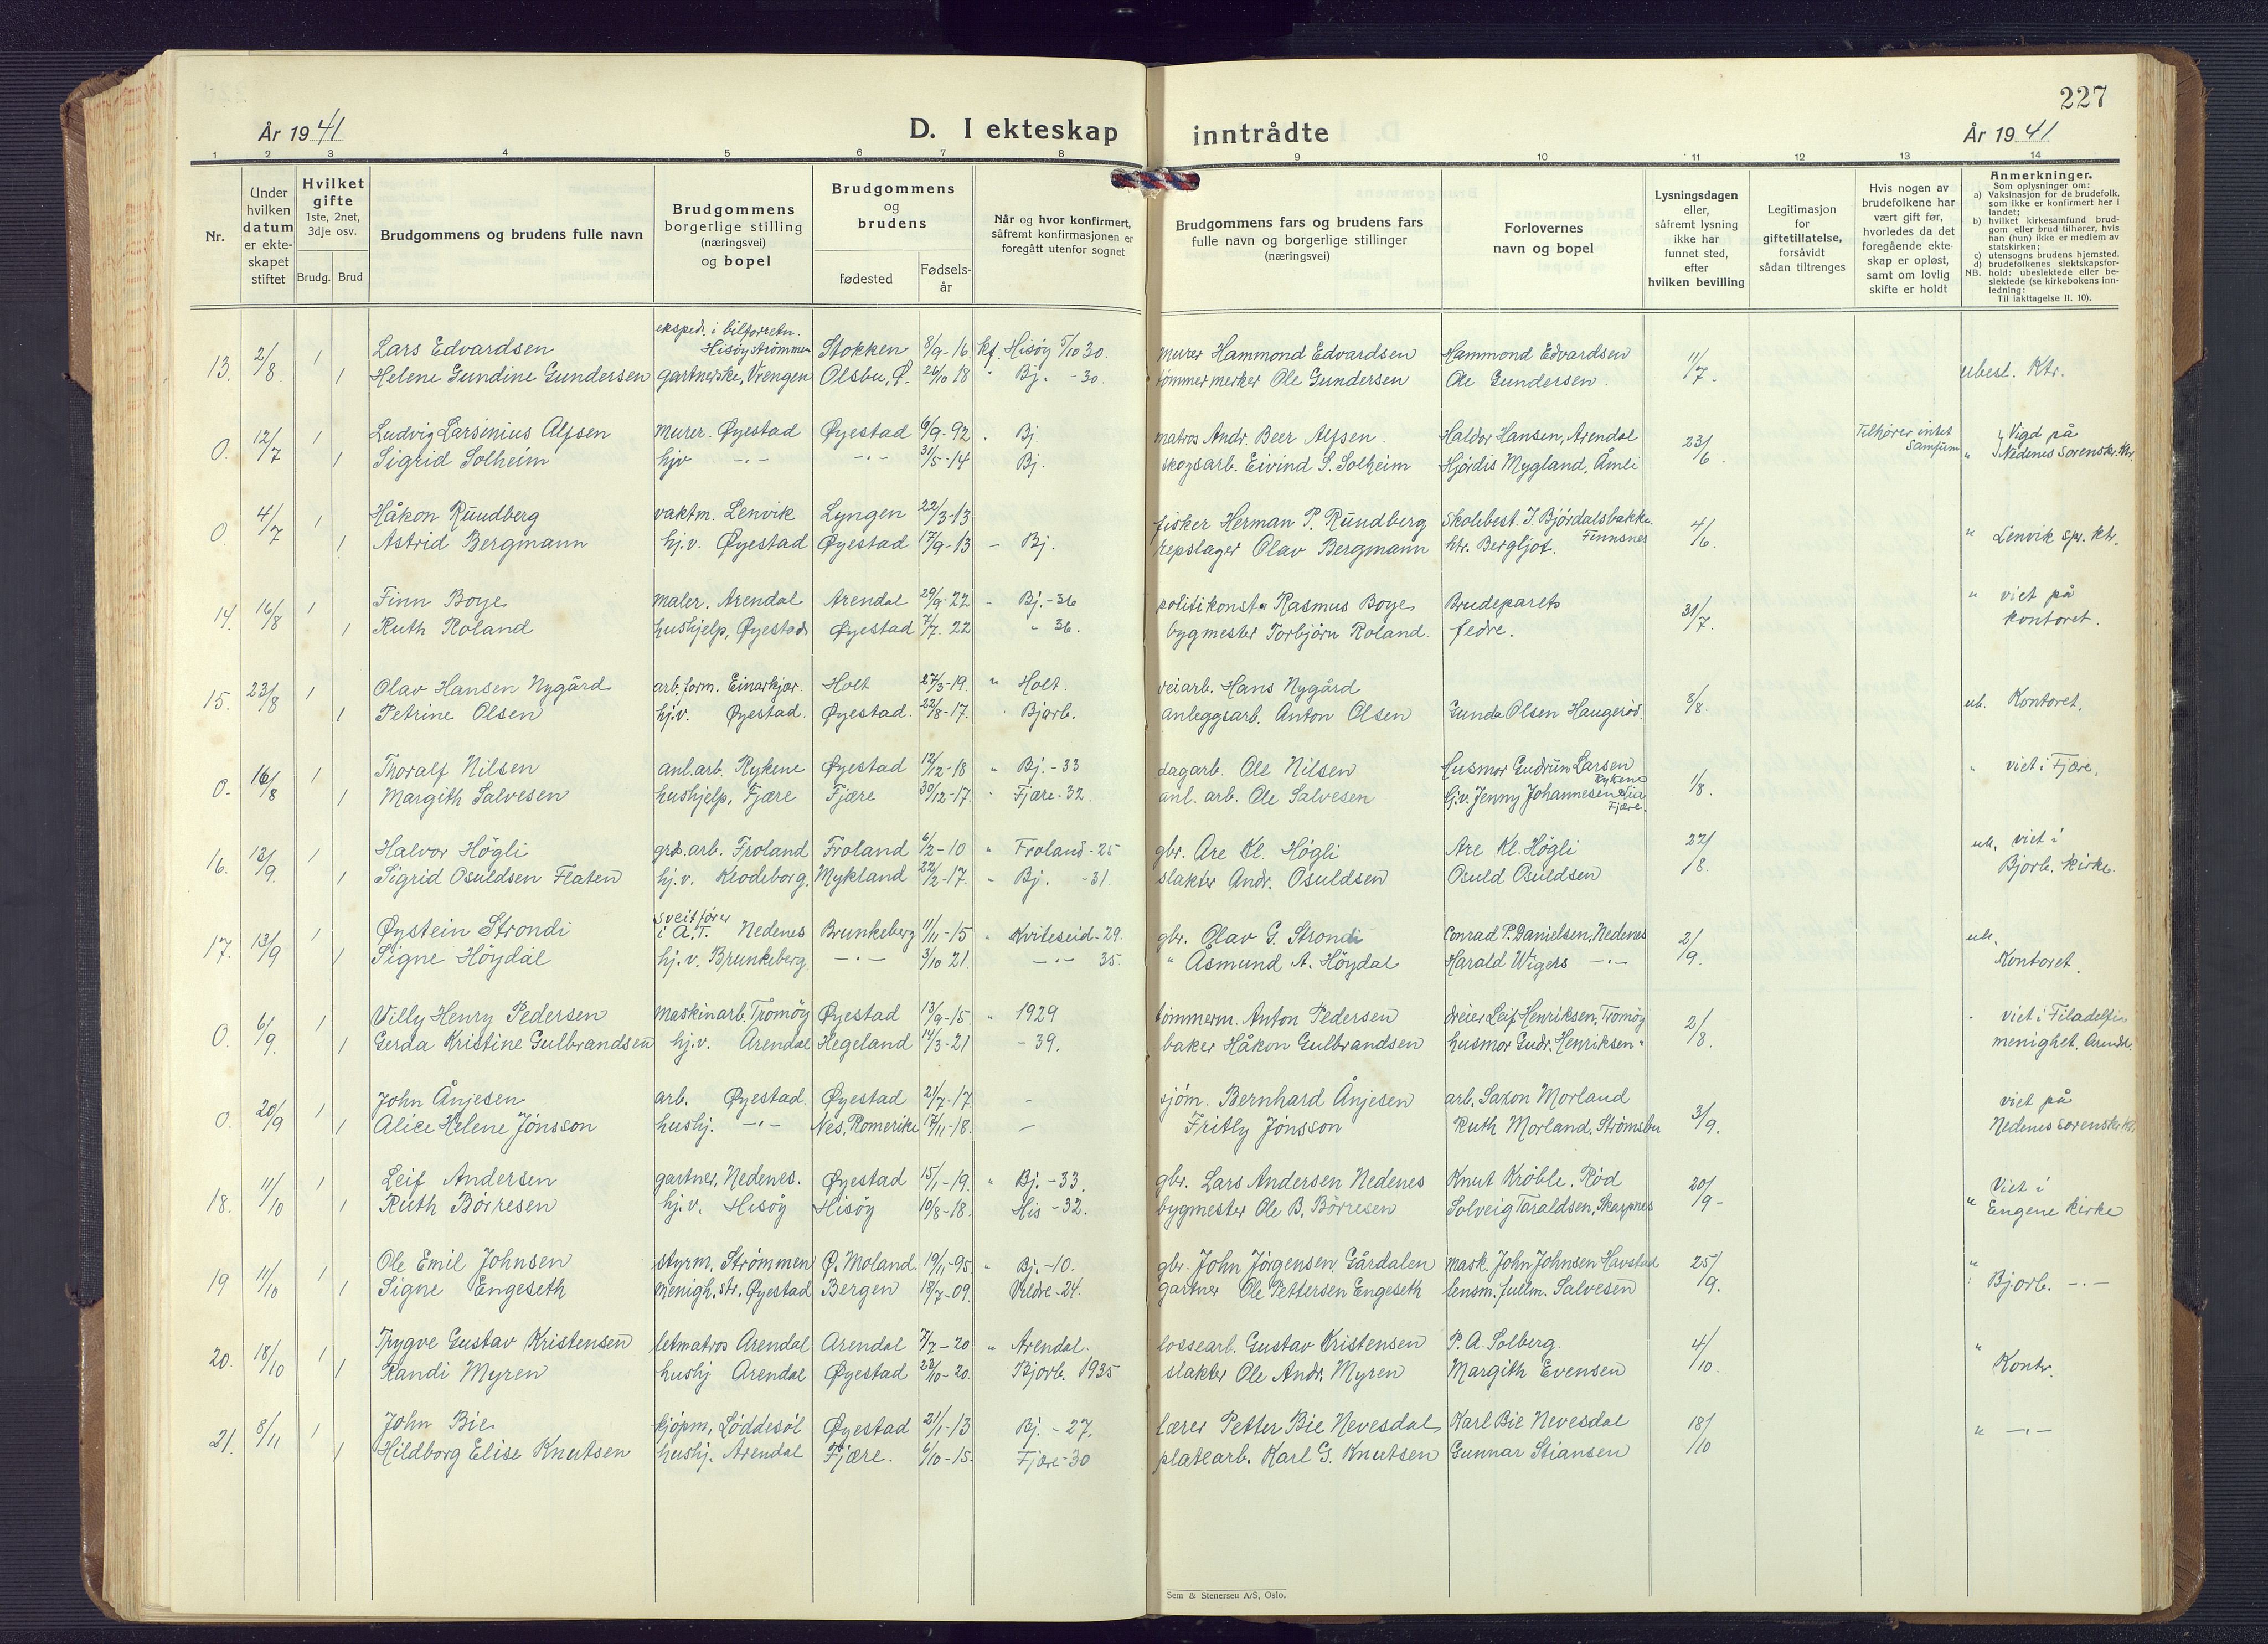 227
År 1941 D. I ekteskap inntrådte År 1941
1 2 3 4 5 6 7 8 9 10 11 12 13 14
Nr.
Under hvilken datum er ekteskapet stiftet
Hvilket gifte 1ste, 2net, 3dje osv.
Brudg. Brud
Brudgommens og brudens fulle navn
Brudgommens borgerlige stilling (næringsvei) og bopel
Brudgommens og brudens
fødested Fødselsår
Når og hvor konfirmert, såfremt konfirmasjonen er foregått utenfor sognet
Brudgommens fars og brudens fars fulle navn og borgerlige stillinger (næringsvei)
Forlovernes navn og bopel
Lysningsdagen eller, såfremt lysning ikke har funnet sted, efter hvilken bevilling
Legitimasjon for giftetillatelse, forsåvidt sådan tiltrenges
Hvis nogen av brudefolkene har vært gift før, hvorledes da det foregående ekteskap er opløst, samt om lovlig skifte er holdt
Anmerkninger.
Som oplysninger om:
a) Vaksinasjon for de brudefolk, som ikke er konfirmert her i landet;
b) hvilket kirkesamfund brudgom eller brud tilhører, hvis han (hun) ikke er medlem av statskirken;
c) utensogns brudens hjemsted.
d) brudefolkenes slektskapsforhold: ubeslektede eller beslektede (se kirkebokens innledning:
NB.
Til iakttagelse II. 10).
eksped. i bilforretn.
13. 2/8 1 Lars Edvardsen Hisöyströmmen Stokken 8/9-16 kf. Hisöy 5/10 30. murer Hammond Edvardsen Hammond Edvardsen 11/7. ubesl. Ktr.
1 Helene Gundine Gundersen gartnerske, Vrengen Olsbu, Ø. 26/10 18 " Bj. -30. tömmermerker Ole Gundersen Ole Gundersen.
0. 12/7 1 Ludvig Larsinius Alfsen murer. Øyestad Øyestad 6/9-92 . Bj. matros Andr. Beer Alfsen. Haldor Hansen, Arendal 23/6 Tilhører intet Samfunn } Vigd på
1 Sigrid Solheim hjv —"— —"— 31/5-14 Bj. skogsarb. Eivind S. Solheim Hjördis Mygland, Åmli " Nedenes Sorenskr. Ktr.
0. 4/7 1 Håkon Rundberg vaktm. Lenvik Lyngen 22/3-13 fisker Herman P. Rundberg Skolebest. I Bjórdalsbakke. 4/6. " Lenvik spr. ktr.
1 Astrid Bergmann hj.v. Øyestad Øyestad 17/9-13 — Bj. repslager Olav Bergmann htr. Bergljot. Finnsnes
14. 16/8 1 Finn Boye maler. Arendal Arendal 29/9-22 " Bj.-36 politikonst. Rasmus Boye Brudeparets 31/7. " viet på
1 Ruth Roland hushjelp, Øyestad Øyestad 7/7. 22 " 36. bygmester Torbjörn Roland. fedre. kontoret.
15. 23/8 1 Olav Hansen Nygård arb.form. Einarkjær. Holt 27/3-19. " Holt. veiarb. Hans Nygård 8/8. ub. Kontoret.
1 Petrine Olsen hj.v. Øyestad. Øyestad. 22/8-17. . Bjorb. anleggsarb. Anton Olsen Gunda Olsen Haugeröd.
0. 16/8 1 Thoralf Nilsen anl.arb. Rykene Øyestad 12/12-18 " Bj.-33 dagarb. Ole Nilsen Husmor Gudrun Larsen Rykene 1/8. " viet i Fjære.
1 Margith Salvesen hushjelp, Fjære Fjære 30/12-17. " Fjære-32. anl. arb. Ole Salvesen hj.v. Jenny Johannesen Lia Fjære.
16. 13/9. 1 Halvor Högli grd.arb. Froland Froland 6/2-10 " Froland-25 gbr. Are Kl. Högli Are Kl. Högli 22/8. ub. viet i
1 Sigrid Osuldsen Flaten hj.v. Klodeborg. Mykland 22/2-17. " Bj. -31. slakter Andr. Osuldsen Osuld Osuldsen Bjorb. kirke.
sveitförer
17. 13/9 1 Øystein Strondi i A.T. Nedenes Brunkeberg 11/11-15 " Kviteseid-29. gbr. Olav G. Strondi Conrad P. Danielsen, Nedenes 2/9. ub.
1 Signe Höydal hj.v. Brunkeberg. —"— 3/10 21. —"— 35. " Åsmund A. Höydal Harald Wigers —"— Kontoret.
0. 6/9. 1 Villy Henry Pedersen maskinarb. Tromöy Øyestad 13/9-15. " 1929 tömmerm. Anton Pedersen dreier Leif Henriksen, Tromöy 2/8. . viet i Filadelfia
1 Gerda Kristine Gulbrandsen hj.v. Arendal Hegeland 14/3-21 - 39. baker Håkon Gulbrandsen husmor Gudr. Henriksen " menighet. Arendal.
0. 20/9 1 John Ånjesen arb. Øyestad. Øyestad 21/7-17. - sjöm. Bernhard Ånjesen arb. Saxon Morland 3/9. viet på
1 Alice Helene Jönsson hushj. —"— Nes, Romerike 17/11-18. — Fritly Jönsson Ruth Morland, Strömsbu Nedenes sorenskr. ktr.
18. 11/10 1 Leif Andersen gartner, Nedenes. Øyestad 15/1-19. " Bj.-33. gbr. Lars Andersen Nedenes Knut Kröble. Röd 20/9- Viet i
1 Ruth Börresen hj.v. Hisöy Hisöy 10/8-18. His-32. bygmester Ole B. Börresen Solveig Taraldsen, Skarpnes " Engene kirke
19 11/10 1 Ole Emil Johnsen styrm. Strömmen Ø. Moland. 19/11-95. " Bj.-10. gbr. John Jörgensen, Gårdalen mask. John Johnsen Havstad 25/9. "
1 Signe Engeseth menigh.str. Øyestad Bergen 18/7-09. Veldre-24. gartner Ole Pettersen Engeseth lensm. fullm. Salvesen Bjorb. —"—
20. 18/10 1 Trygve Gustav Kristensen letmatros Arendal Arendal 7/7-20 " Arendal. lossearb. Gustav Kristensen P. A. Solberg. 4/10. "
1 Randi Myren hushj Arendal Øyestad 23/10-20. Bjorb. 1935 slakter Ole Andr. Myren Margith Evensen Kontr.
21. 8/11 1 John Bie kjöpm, Löddesöl Øyestad 21/1-13 Bj. -27. lærer Petter Bie Nevesdal Karl Bie Nevesdal 18/10 " —"—
1 Hildborg Elise Knutsen hushj. Arendal Fjære. 6/10-15. Fjære-30 platearb. Karl G. Knutsen Gunnar Stiansen
Sem & Stenersen A/S, Oslo.